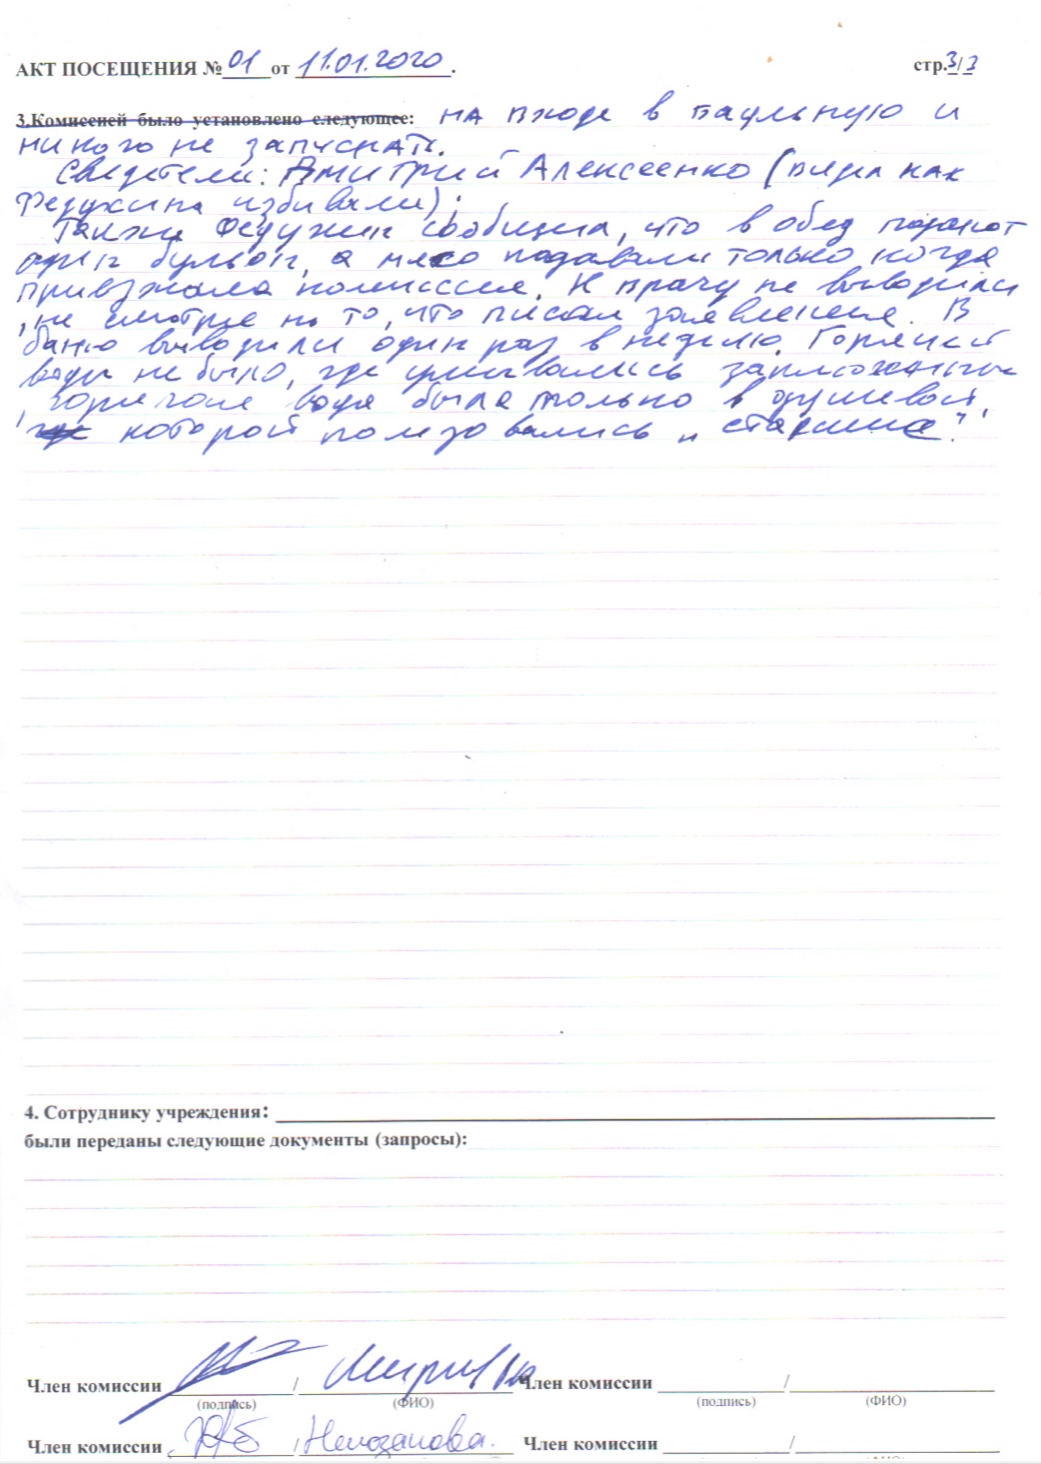 АКТ ПОСЕЩЕНИЯ № 01 от 11.01.2020.
стр.3/3
3.Комиссией было установлено следующее: на входе в спальную и
никого не запускать.
Свидетели: Дмитрий Алексеенко (видел как
Федухина избивали);
Также Федухин сообщил, что в обед подают
один бульон, а мясо подавали только когда
приезжала комиссия. К врачу не выводили
, не смотря на то, что писал заявления. В
баню выводили один раз в неделю. Горячей
воды не было, где умывались заключенные
, горячая вода была только в душевой,
которой пользовались „старшие".
4. Сотруднику учреждения:
были переданы следующие документы (запросы):
Член комиссии / Член комиссии /
(подпись) (ФИО) (подпись) (ФИО)
Член комиссии / Член комиссии /
(ФИО)